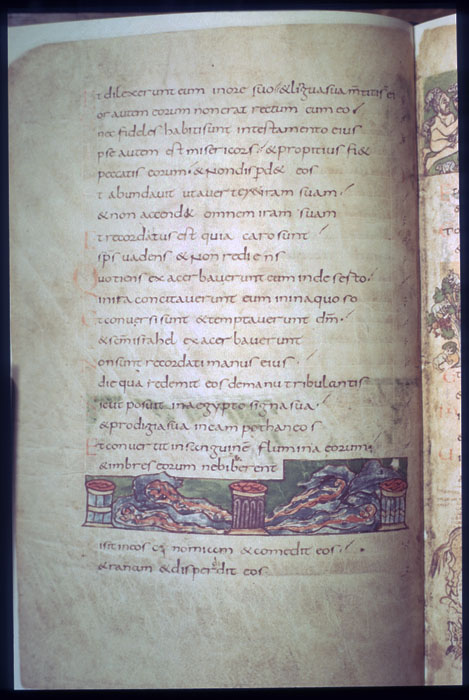 t dilexerunt eum inore suo & lingua sua mtitis ei
or autem eorum non erat rectum cum eo
nec fideles habiti sunt intestamento eius
pse autem est misericors & propitius fi&
peccatis eorum & Non dispd& eos
t abundavit ut averter& iram suam
& non accend& omnem iram suam
t recordatus est quia caro sunt
sps vadens & Non rediens
uotiens exacerbaverunt eum in deserto
in ira concitaverunt eum ininaquoso
t conversi sunt & temptaverunt dm
& scm israhel exacerbaverunt
on sunt recordati manus eius
die qua redemit eos demanu tribulantis
icut posuit inaegypto signa sua
& prodigia sua incampo thaneos
Et convertit insanguine flumina eorum
& imbres eorum ne biberent
isit in eos cynomiam & comedit eos
& ranam & disperdit eos